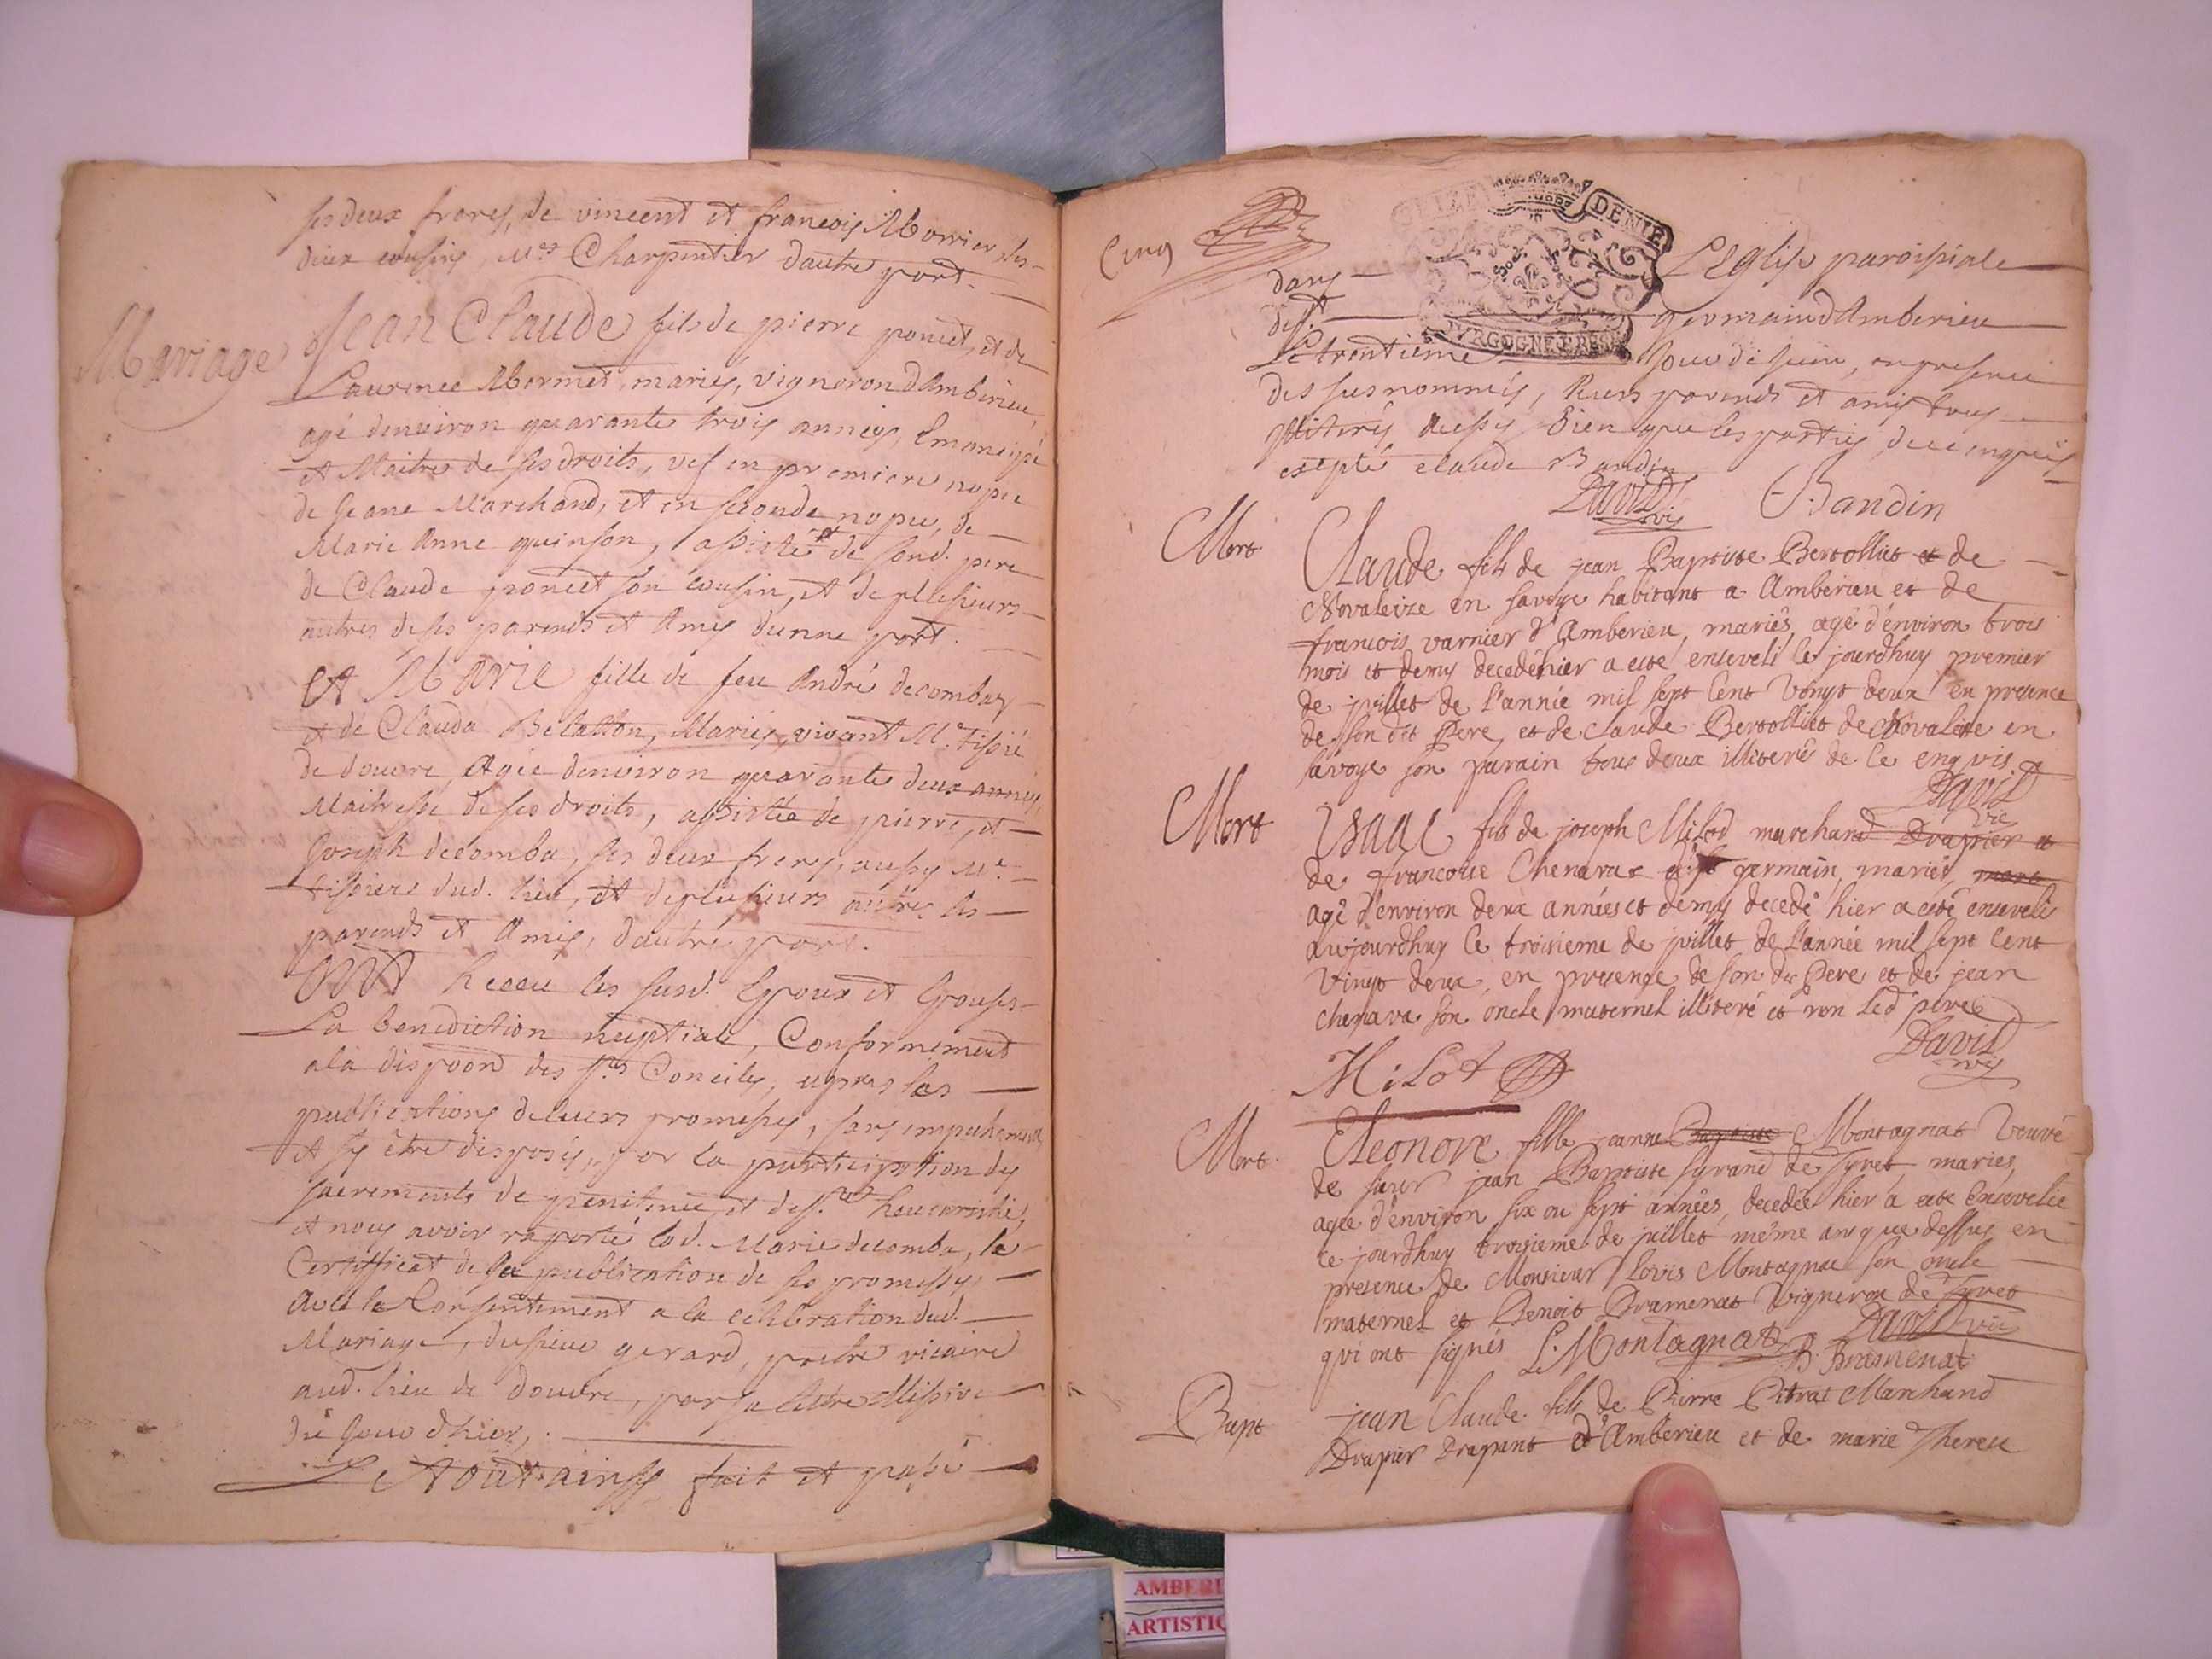 ses deux freres, de vincent et francois Morrier ses
deux cousins, Mes Charpentier dautre part.
Mariage
Jean Claude fils de pierre poncet, et de
Laurence Mermet, mariés, vigneron d'Amberieu,
agé denviron quarante trois années, Emancipé
et Maitre de ses droits, vef en premiere nopce
de Jeane Marchand, et en seconde nopce, de
Marie Anne quinson, assisté de sond. pere
de Claude poncet son cousin, et de plusieurs
autres de ses parents et Amis dunne part.
Et Marie fille de feu André decombaz
et de Clauda Belatton, Mariés, vivant Me Tissié
de douvre, Agée denviron quarante deux années,
Maitresse de ses droits, assistée de pierre, et
Joseph decomba, ses deux freres, aussy Me
tissiers dud. lieu, et de plusieurs autres ses
parents et Amis, dautre part.
Ont Receu les susd. Epoux et Epouse
La benediction nuptiale, Conformement
a la dispoon des Sts Conciles, apres les
publications de leurs promesses, sans empechement,
et sy être disposés, par la participation des
sacrements de penitence et de Ste heucaristie,
et nous avoir raporté lad. Marie decomba, le
Certifficat de la publication de ses promesses
avec le Consentement a la celebration dud.
Mariage, du sieur gerard, prestre vicaire
aud. lieu de douvre, par sa lettre Missive
du Jour d'hier,
Le tout ainsy fait et passé
Cinq
DENIE
BOURGOGNE BRESSE
dans L'Eglise paroissiale
de St germain d'Amberieu
Le trentieme Jour de juin, en presence
des susnommés, leurs parents et amis tous
illiterés aussy bien que les parties de ce enquis
excepté claude Bandin
David vic Bandin
Mort
Claude fils de jean Baptiste Bertolliet et de
Novaleize en savoye habitant a Amberieu et de
francois varnier d'Amberieu, mariés, agé d'environ trois
mois et demy decedé hier a esté enseveli ce jourdhuy premier
de juillet de l'année mil sept Cent vingt deux en presence
de son dit Pere, et de claude Bertolliet de Novaleize en
savoye son parain tous deux illiterés de ce enquis
David vic
Mort
Isaac fils de joseph Milod marchand Drapier et
de francoise Chenavaz de St germain, mariés,
agé d'environ deux années et demy decedé hier a esté enseveli
aujourdhuy ce troisieme de juillet de l'année mil sept Cent
vingt deux, en presence de son dit Pere et de jean
chenava son oncle maternel illiteré et non led pere
David vic
Milot
Mort
Eleonore fille jeanne Baptiste Montagnat veuve
de sieur jean Baptiste syrand de Tyret, mariés,
agée d'environ six ou sept années, decedée hier a esté Ensevelie
ce jourdhuy troisieme de juillet même an que dessus en
presence de Monsieur Lovis Montagnat son oncle
maternel et Benoit Bramenat Vigneron de Tyret
qui ont signés L. Montagnat David vic
B. Bramenat
Bapt
jean Claude fils de Pierre Pitrat Marchand
Drapier Drapant d'Amberieu et de marie Therese
AMBERI
ARTISTIQ